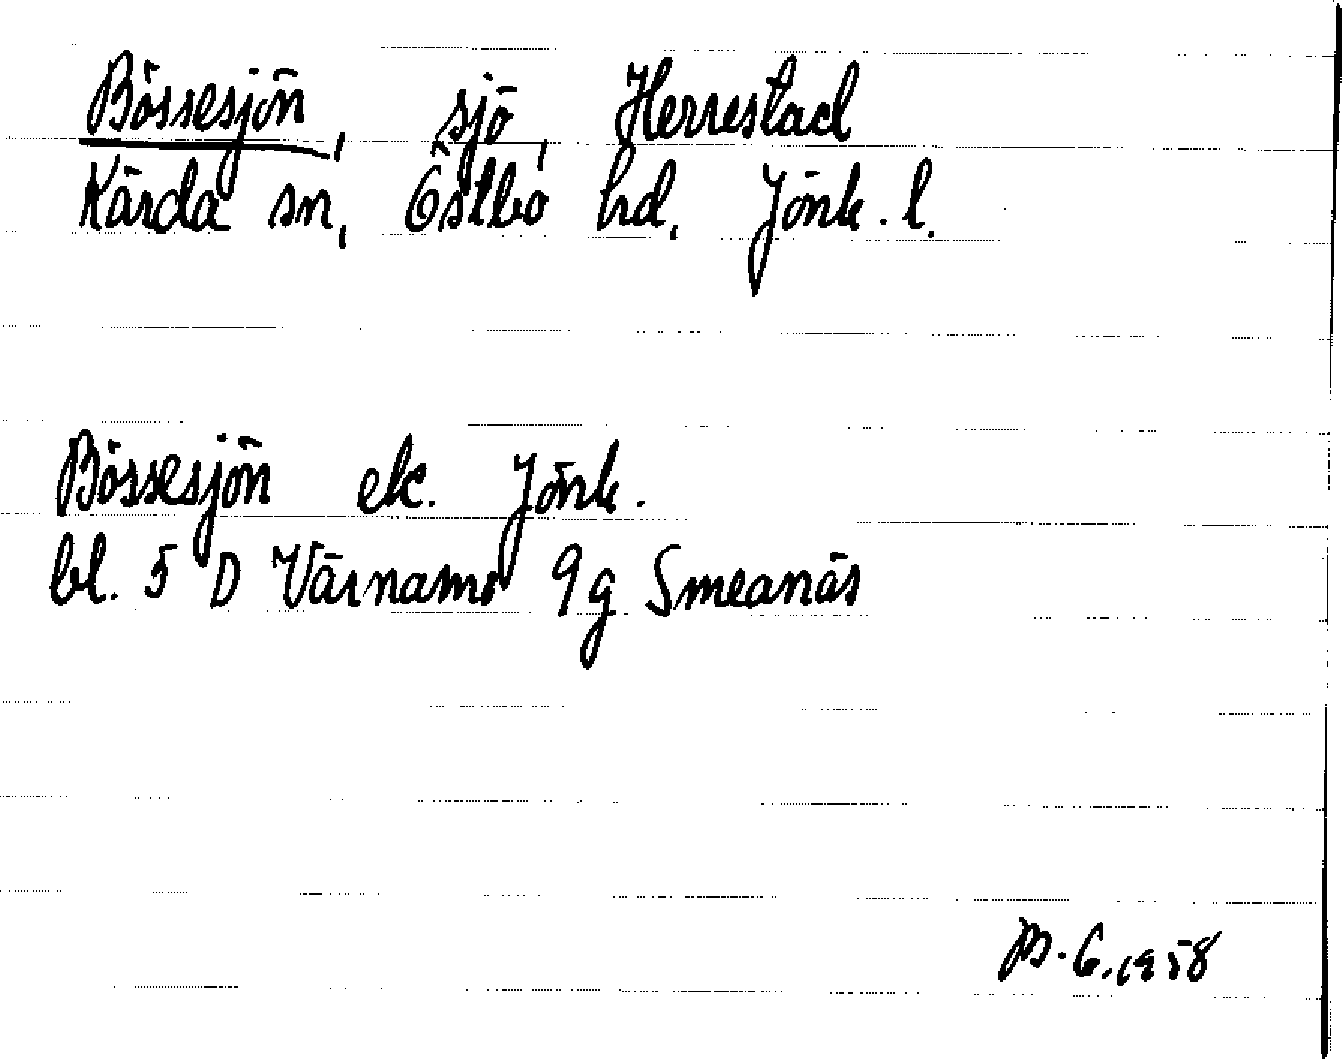 Bössesjön, sjö, Herrestad
Kärda sn, Östbo hd, Jönk. l.
Bössesjön ek. Jönk.
bl. 5 D Värnamo 9g Smeanäs
B. G. 1958